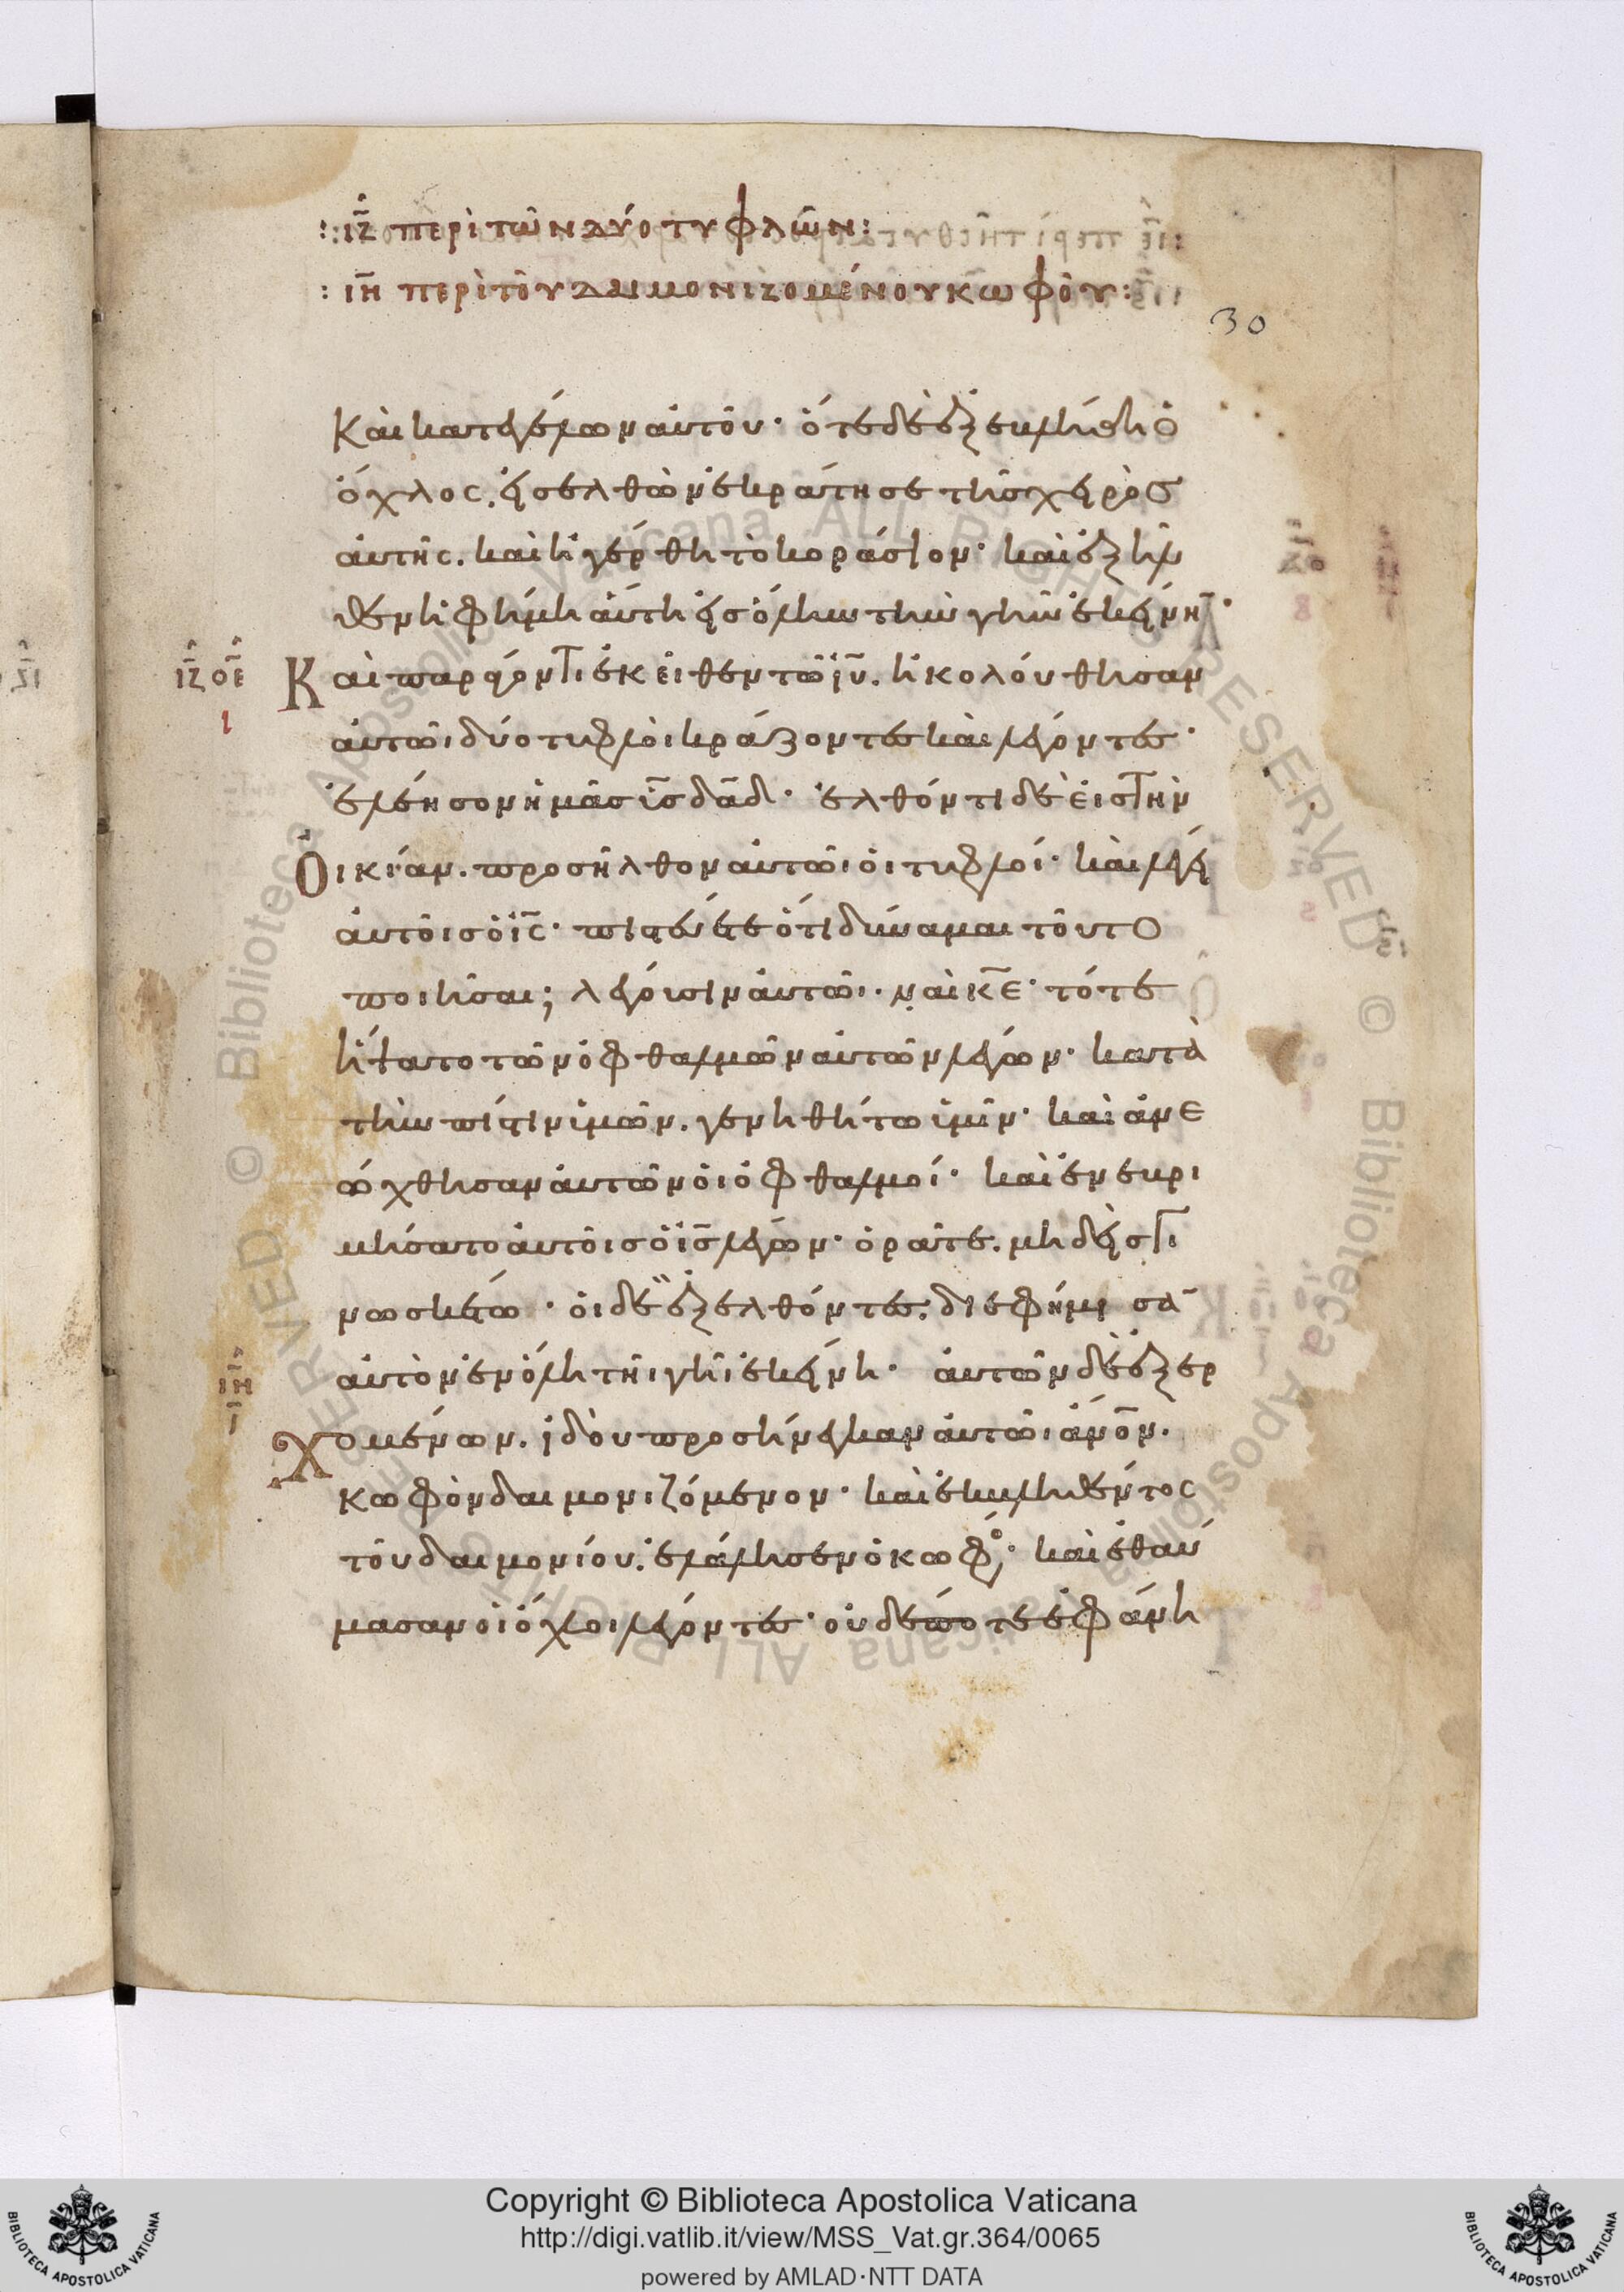 : ιζ̅ περὶ τῶν δύο τυφλῶν :
: ιη̅ περὶ τοῦ δαιμονιζομένου κωφοῦ :
30
Καὶ κατεγέλων αὐτοῦ· ὅτε δὲ ἐξεβλήθη ὁ
ὄχλος. εἰσελθὼν ἐκράτησε τῆς χειρὸς
αὐτῆς. καὶ ἠγέρθη τὸ κοράσιον· καὶ ἐξῆλ
θεν ἡ φήμη αὕτη εἰς ὅλην τὴν γῆν ἐκείνην·
ιζ̅ οε̅ Καὶ παράγοντι ἐκεῖθεν τῶ ιυ̅. ἠκολούθησαν
ι
αὐτῶι δύο τυφλοὶ κράζοντες καὶ λέγοντες·
ἐλέησον ἡμᾶς υἱε̅ δα̅δ· ἐλθόντι δὲ εἰς τὴν
Οἰκίαν. προσῆλθον αὐτῶι οἱ τυφλοί· καὶ λέγει
αὐτοῖς ὁ ις̅· πιστεύετε ὅτι δύναμαι τοῦτο
ποιῆσαι; λέγουσιν αὐτῶι. ναὶ κε̅· τότε
ἥψατο τῶν ὀφθαλμῶν αὐτῶν λέγων· κατὰ
τὴν πίστιν ὑμῶν. γενηθήτω ὑμῖν· καὶ ἀνε
ώχθησαν αὐτῶν οἱ ὀφθαλμοί· καὶ ἐνεβρι
μήσατο αὐτοῖς ὁ ις̅ λέγων· ὁρᾶτε. μηδεὶς γι
νωσκέτω· οἱ δὲ ἐξελθόντες. διεφήμισα̅
αὐτὸν ἐν ὅλη τῆι γῆι ἐκείνη· αὐτῶν δὲ ἐξερ
ιη̅
Χομένων. ἰδοὺ προσήνεγκαν αὐτῶι ἀνο̅ν.
κωφὸν δαιμονιζόμενον· καὶ ἐκβληθέντος
τοῦ δαιμονίου. ἐλάλησεν ὁ κωφός· καὶ ἐθαύ
μασαν οἱ ὄχλοι λέγοντες· οὐδέποτε ἐφάνη
Copyright © Biblioteca Apostolica Vaticana
http://digi.vatlib.it/view/MSS_Vat.gr.364/0065
powered by AMLAD·NTT DATA
BIBLIOTECA APOSTOLICA VATICANA
BIBLIOTECA APOSTOLICA VATICANA